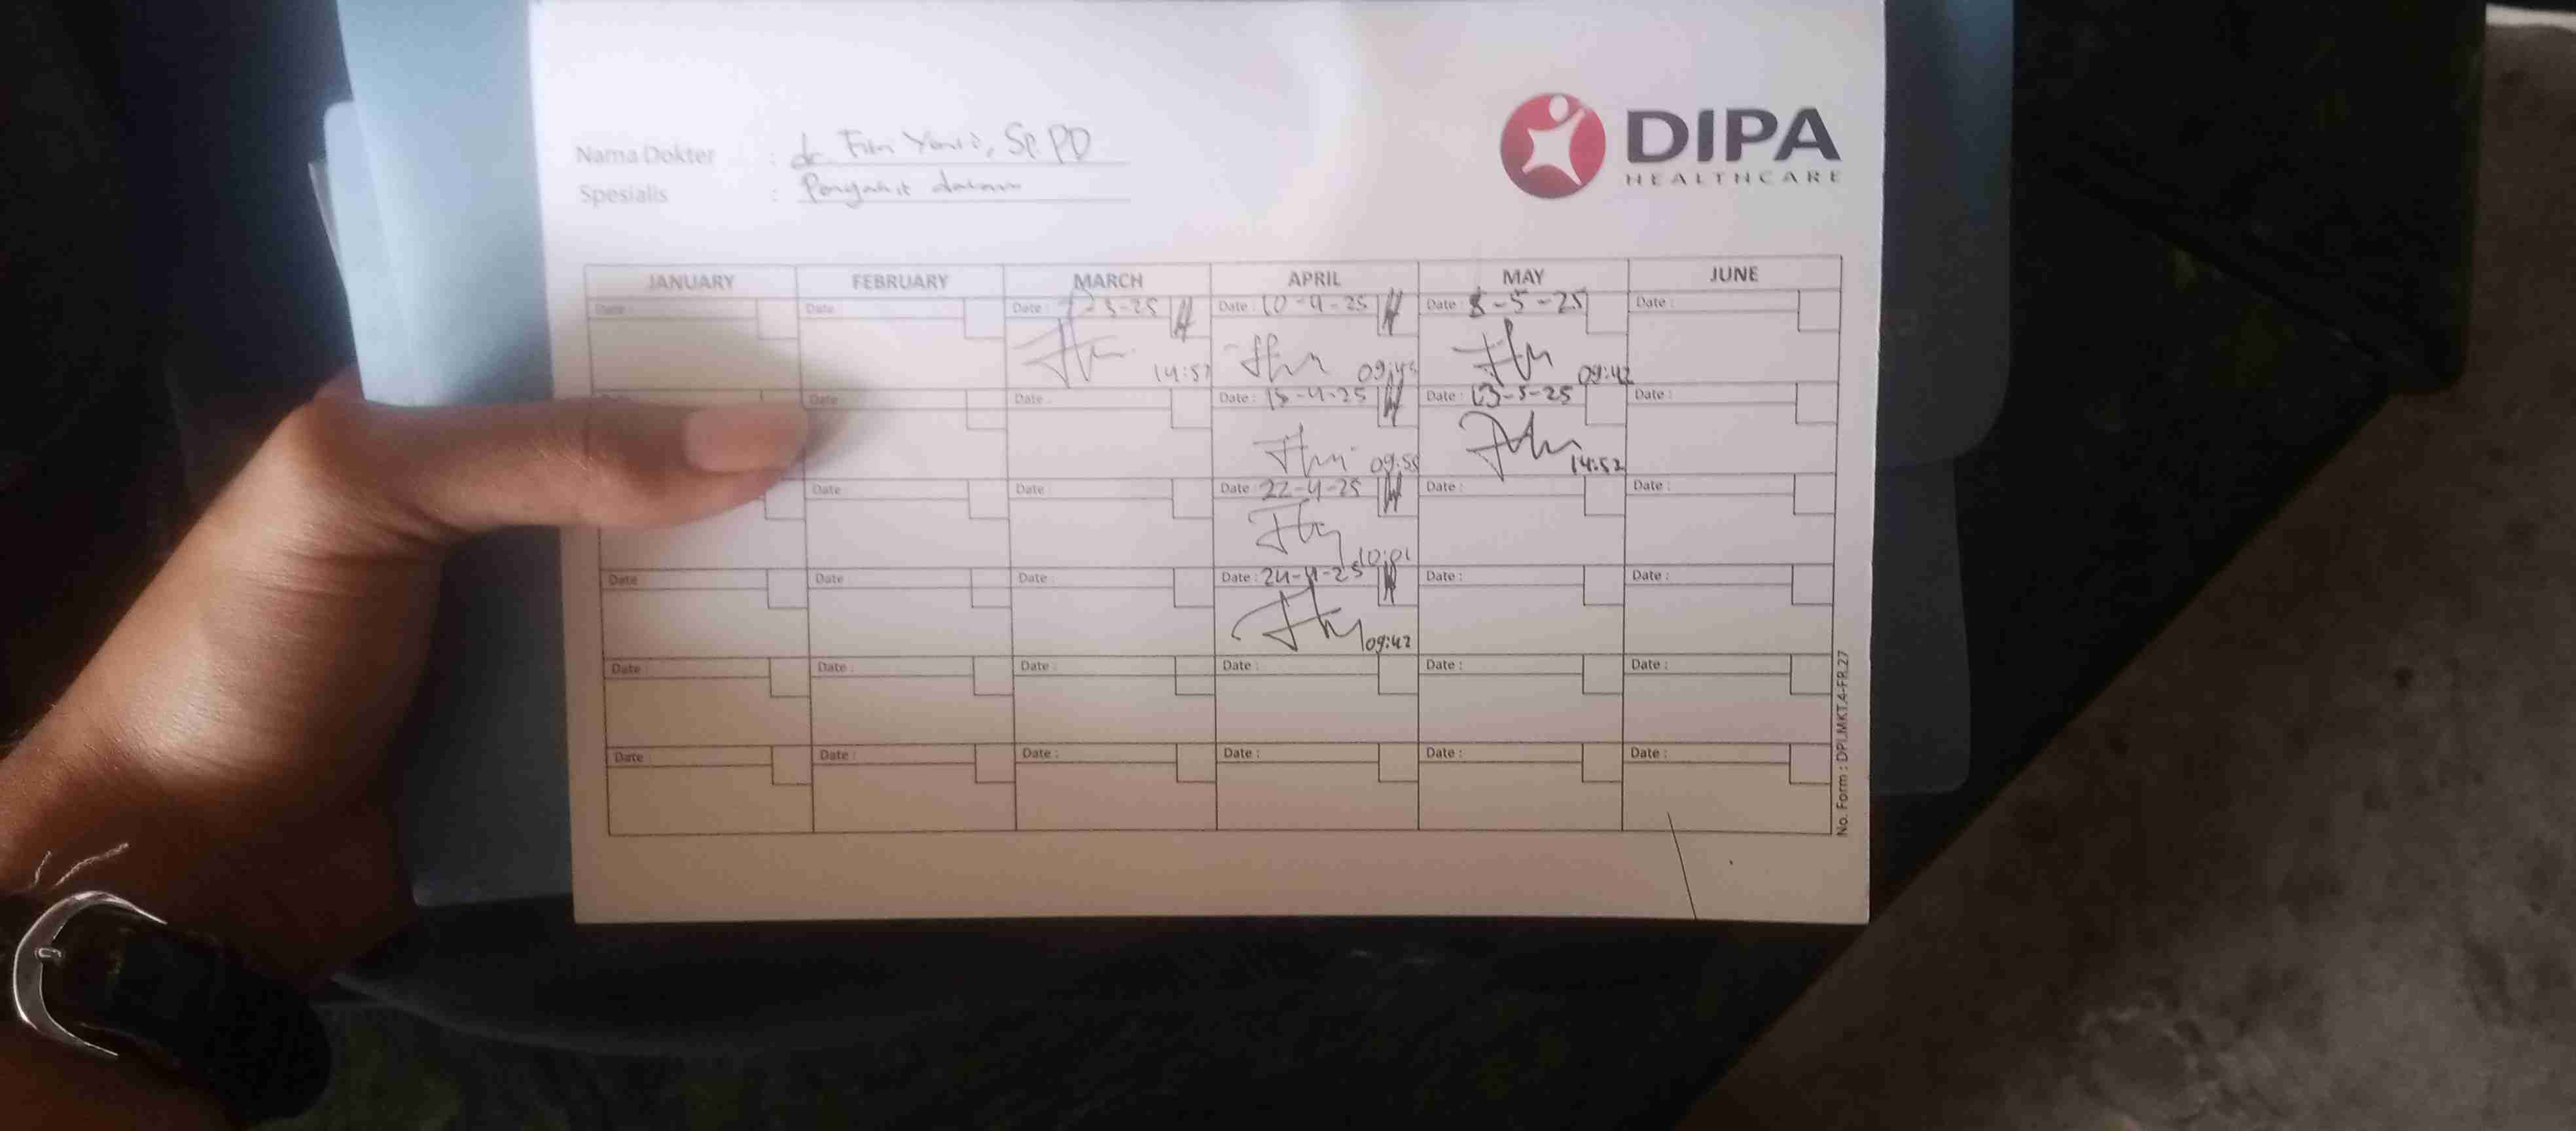 DIPA
HEALTHCARE
Nama Dokter : dr. Yanis, Sp.PD
Spesialis : Penyakit dalam
JANUARY FEBRUARY MARCH APRIL MAY JUNE
Date : Date Date : -3-25 Date : 10-4-25 Date : 8-5-25 Date :
14:57 09:45 09:42
Date Date : Date : 15-4-25 Date : 13-5-25 Date :
09:55 14:52
Date Date Date : 22-4-25 Date : Date :
10:01
Date Date Date : Date : 24-4-25 Date : Date :
09:42
Date Date : Date : Date : Date : Date :
Date Date : Date : Date : Date : Date :
No. Form : DPI.MKT.4-FR.27